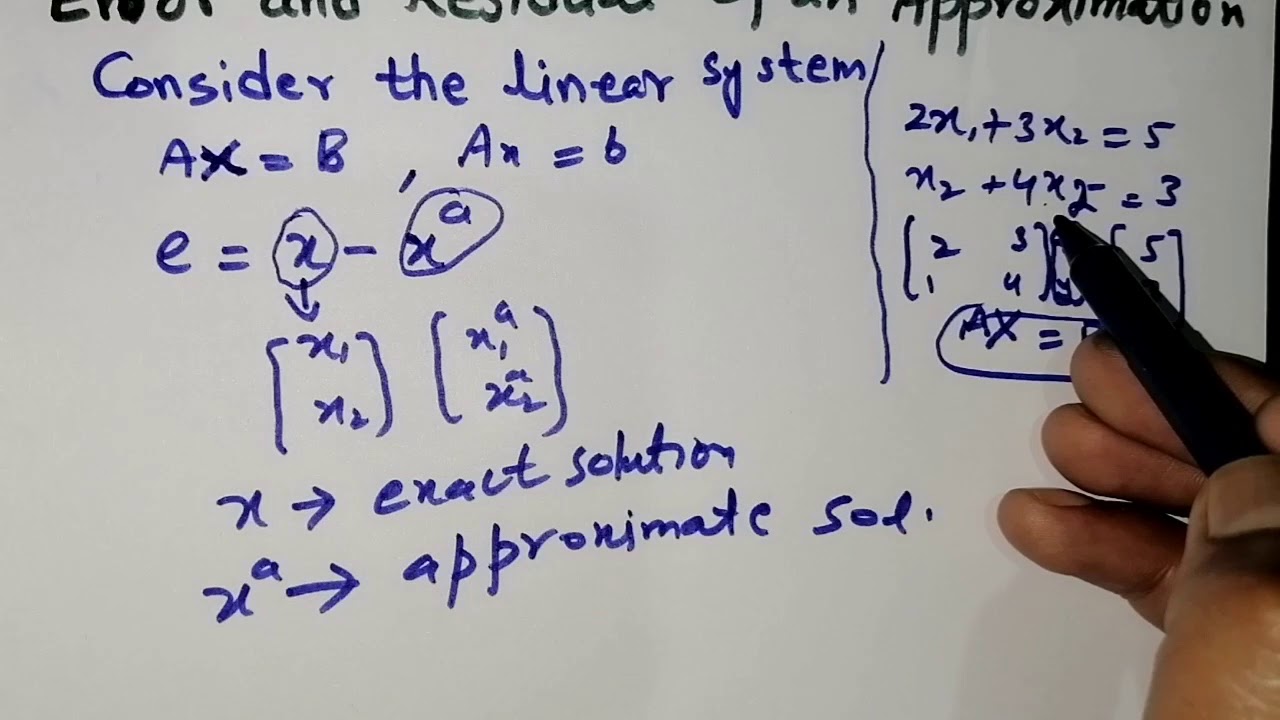 Error and Residual of an Approximation
Consider the linear system
AX = B , Ax = b
e = x - xᵃ
[x₁ x₂] [x₁ᵃ x₂ᵃ]
x → exact solution
xᵃ → approximate sol.
2x₁ + 3x₂ = 5
x₂ + 4x₂ = 3
[2 3
1 4] [5]
AX =